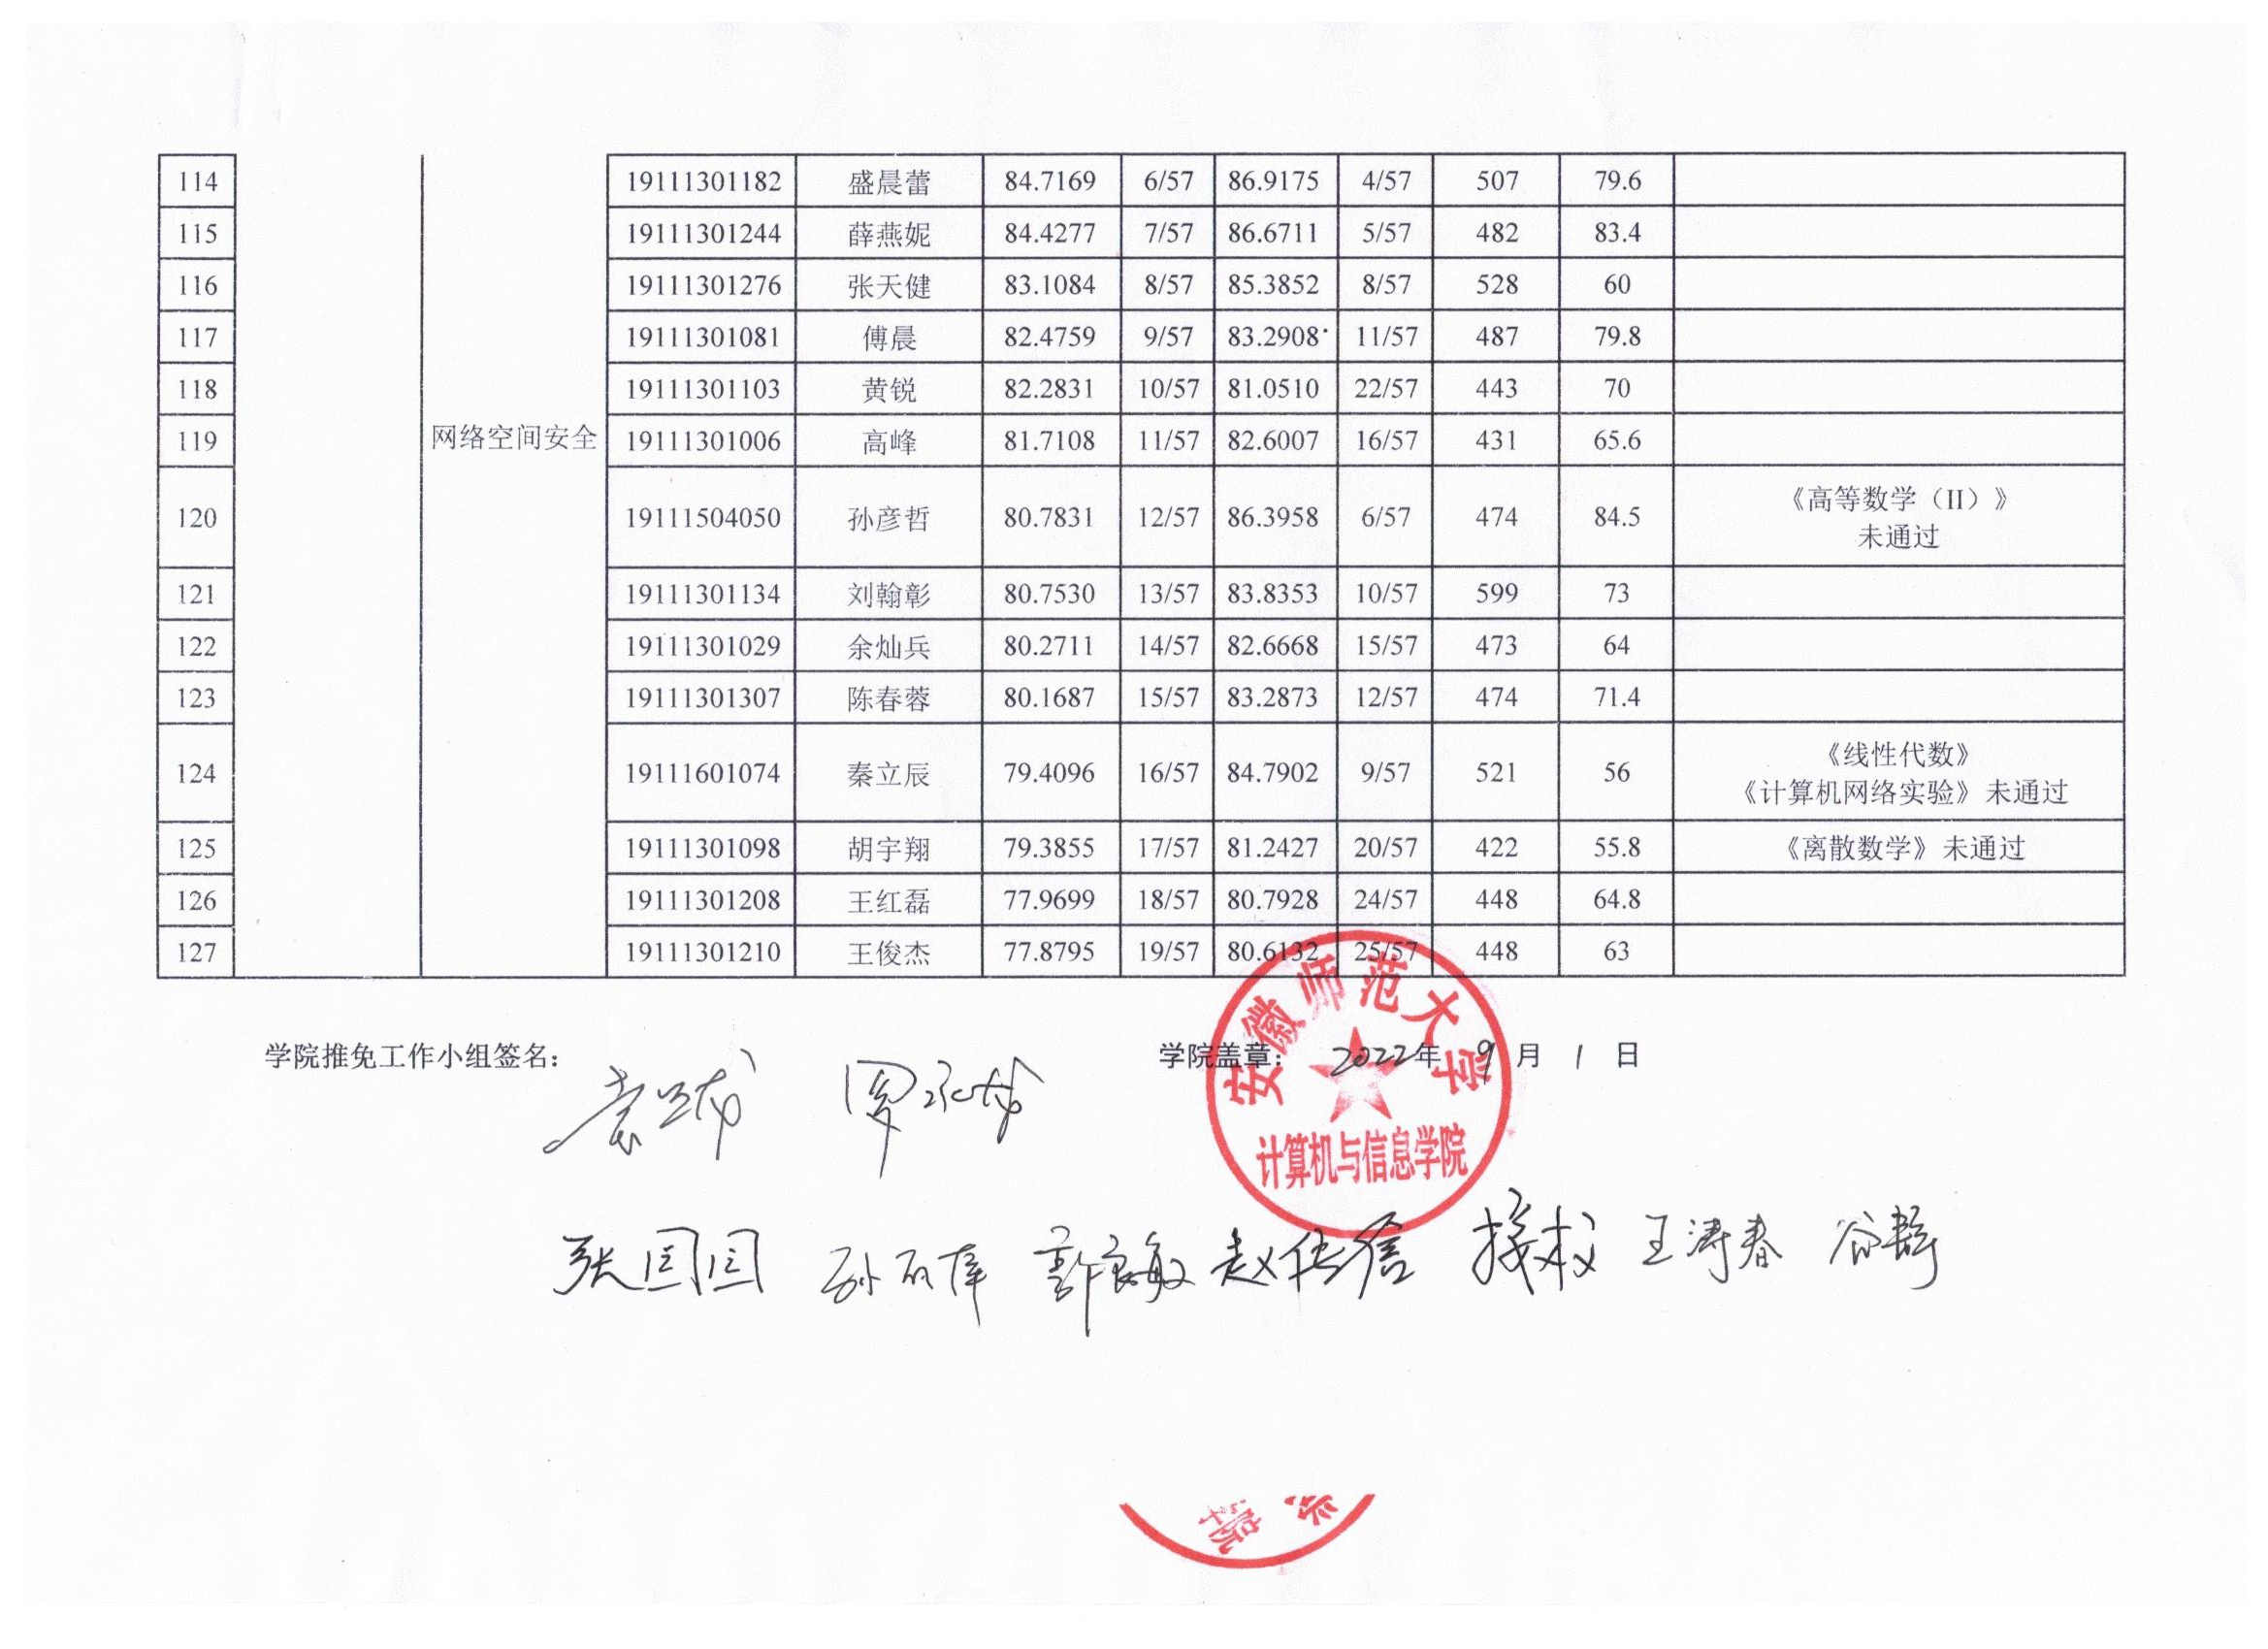 114 19111301182 盛晨蕾 84.7169 6/57 86.9175 4/57 507 79.6
115 19111301244 薛燕妮 84.4277 7/57 86.6711 5/57 482 83.4
116 19111301276 张天健 83.1084 8/57 85.3852 8/57 528 60
117 19111301081 傅晨 82.4759 9/57 83.2908 11/57 487 79.8
118 19111301103 黄锐 82.2831 10/57 81.0510 22/57 443 70
119 网络空间安全 19111301006 高峰 81.7108 11/57 82.6007 16/57 431 65.6
120 19111504050 孙彦哲 80.7831 12/57 86.3958 6/57 474 84.5 《高等数学（II）》
未通过
121 19111301134 刘翰彰 80.7530 13/57 83.8353 10/57 599 73
122 19111301029 余灿兵 80.2711 14/57 82.6668 15/57 473 64
123 19111301307 陈春蓉 80.1687 15/57 83.2873 12/57 474 71.4
124 19111601074 秦立辰 79.4096 16/57 84.7902 9/57 521 56 《线性代数》
《计算机网络实验》未通过
125 19111301098 胡宇翔 79.3855 17/57 81.2427 20/57 422 55.8 《离散数学》未通过
126 19111301208 王红磊 77.9699 18/57 80.7928 24/57 448 64.8
127 19111301210 王俊杰 77.8795 19/57 80.6132 25/57 448 63
安徽师范大学
学院推免工作小组签名： 学院盖章： 2022年 9 月 1 日
计算机与信息学院
张囯囯 赵传信 接标 王涛春
学院